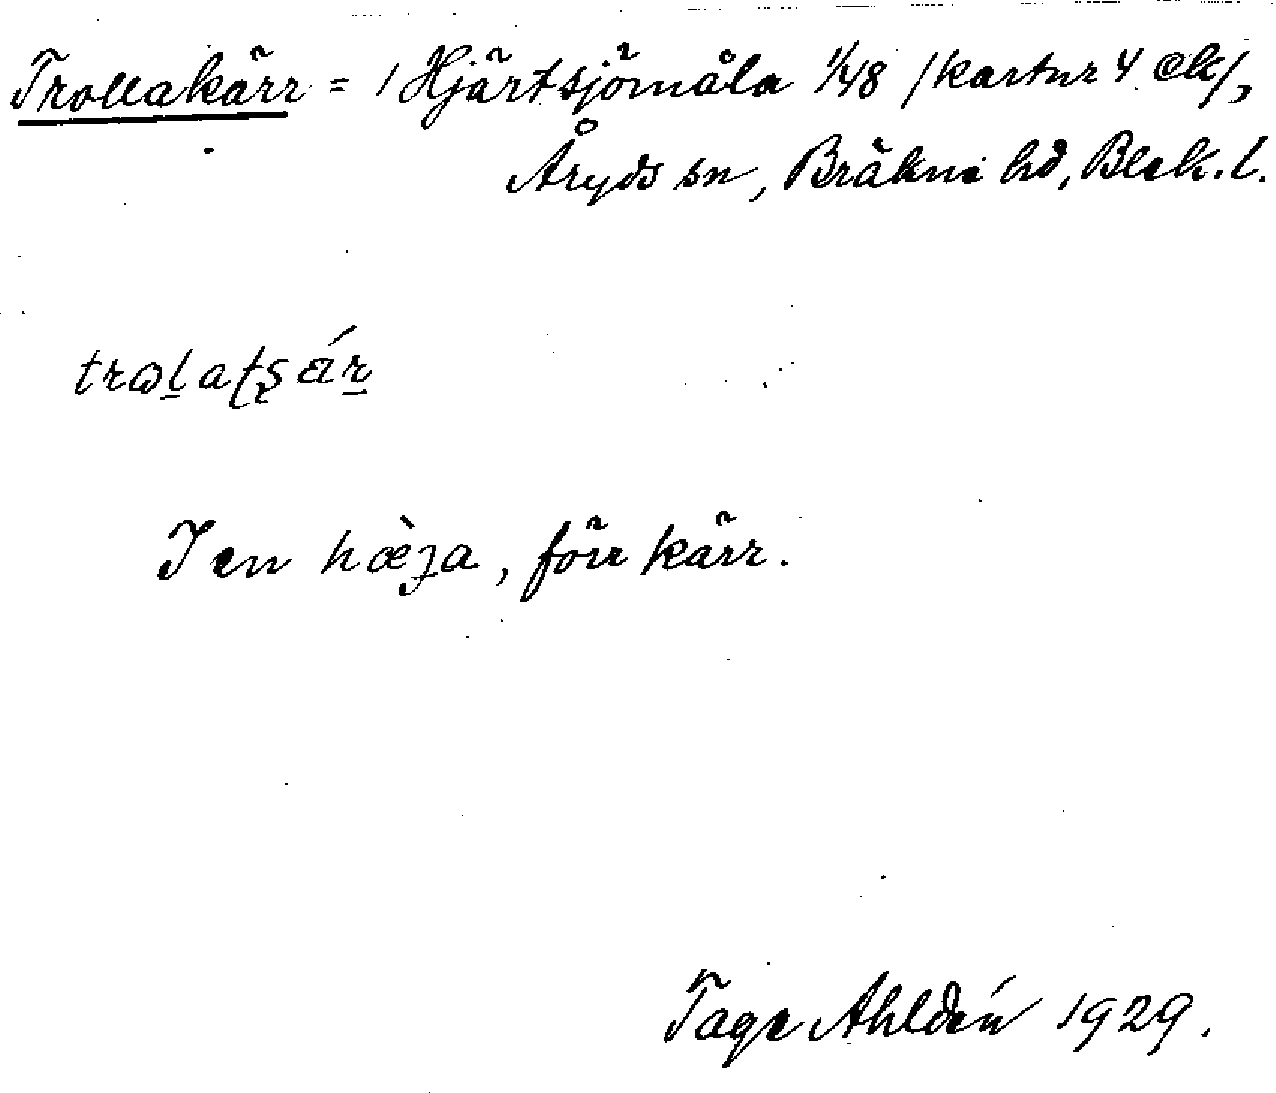 Trollakärr = / Hjärtsjömåla 1/48 /kartnr 4 ek/,
Åryds sn, Bräkne hd, Blek. l.
trωl̲atʂǽr̲
I en hæ̀ʒa, förr kärr.
Tage Ahldén 1929.